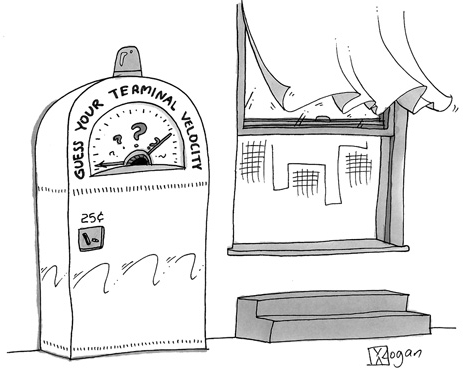 GUESS YOUR TERMINAL VELOCITY
? ?
25¢
Logan